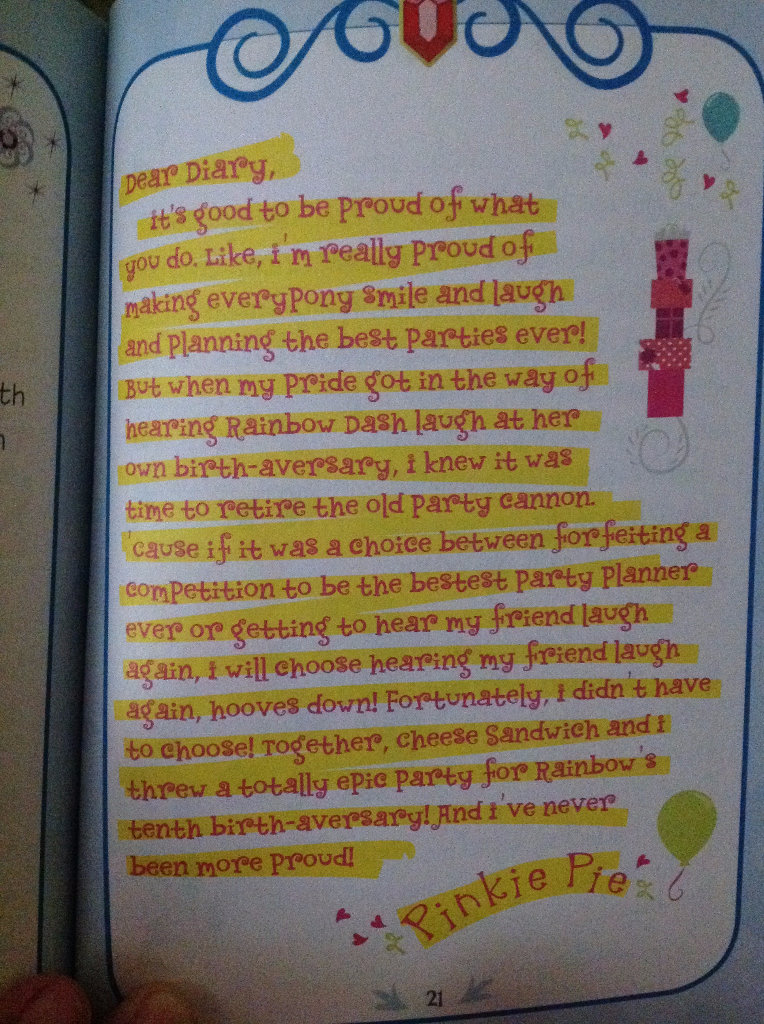 Dear Diary,
it's good to be proud of what
you do. Like, i'm really proud of
making everypony smile and laugh
and planning the best parties ever!
But when my pride got in the way of
hearing Rainbow Dash laugh at her
own birth-aversary, i knew it was
time to retire the old party cannon.
'cause if it was a choice between forfeiting a
competition to be the bestest party planner
ever or getting to hear my friend laugh
again, i will choose hearing my friend laugh
again, hooves down! Fortunately, i didn't have
to choose! Together, Cheese Sandwich and i
threw a totally epic party for Rainbow's
tenth birth-aversary! And i've never
been more proud!
Pinkie Pie
21
th